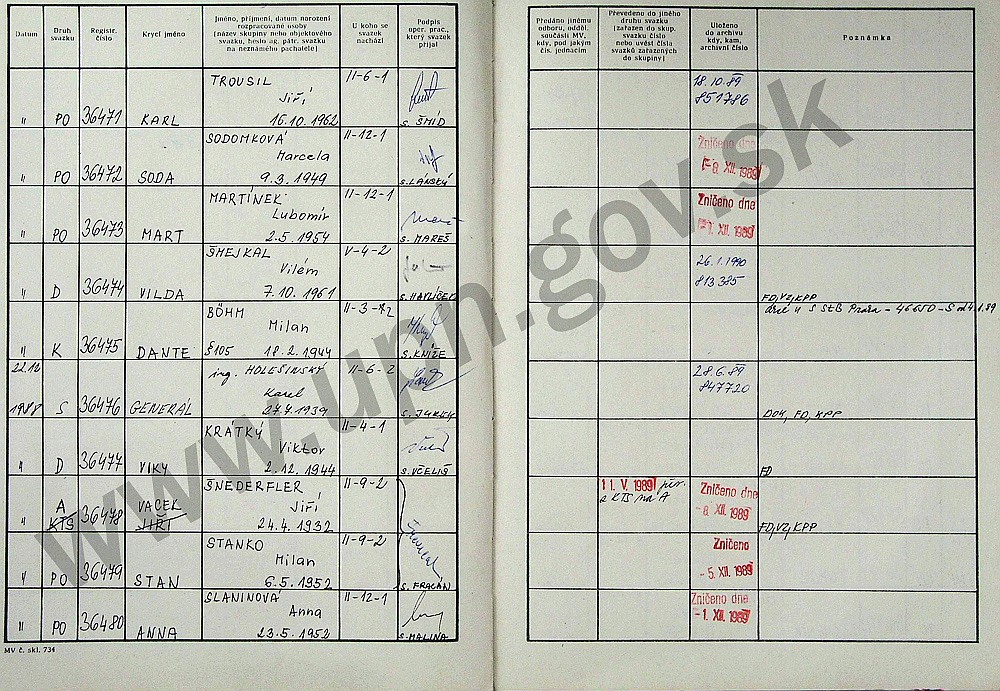 Datum
Druh svazku
Registr. číslo
Krycí jméno
Jméno, příjmení, datum narození
rozpracované osoby
(název skupiny nebo objektového
svazku, heslo ag. pátr. svazku
na neznámého pachatele)
U koho se
svazek
nachází
Podpis
oper. prac.,
který svazek
přijal
Předáno jinému
odboru, odděl.
součásti MV,
kdy, pod jakým
čís. jednacím
Převedeno do jiného
druhu svazku
(zařazen do skup.
svazku číslo
nebo uvést číslo
svazků zařazených
do skupiny)
Uloženo
do archivu
kdy, kam,
archivní číslo
Poznámka
TROUSIL II-6-1 18.10.89
Jiří 851786
" PO 36471 KARL 16.10.1962 s. ŠMÍD
SODOMKOVÁ II-12-1 Zničeno dne
Marcela - 8. XII. 1989
" PO 36472 SODA 9.3.1949 s. LÁNSKÝ
MARTÍNEK II-12-1 Zničeno dne
Lubomír - 1. XII. 1989
" PO 36473 MART 2.5.1954 s. MAREŠ
ŠMEJKAL V-4-2 26.1.1990
Vilém 813335
" D 36474 VILDA 7.10.1961 s. HAVLÍČEK FD,VZ,KPP
BÖHM II-3-2 dříve u S StB Praha - 46650-S od 4.1.89
Milan
" K 36475 DANTE §105 18.2.1944 s. KNÍŽE
22.12 ing. HOLEŠINSKÝ II-6-2 28.6.89
Karel 847720
1988 S 36476 GENERÁL 27.7.1939 DOK, FD, KPP
KRATKÝ II-4-1
Viktor
" D 36477 VIKY 2.12.1944 s. VČELIŠ FD
ŠNEDERFLER II-9-2 11. V. 1989 přev.
A VACEK Jiří z KTS na A Zničeno dne
" KTS 36478 JIŘÍ 24.4.1932 - 8. XII. 1989 FD,VZ,KPP
STANKO II-9-2 Zničeno
Milan - 5. XII. 1989
" PO 36479 STAN 6.5.1952 s. FRACÁN
SLANINOVÁ II-12-1 Zničeno dne
Anna - 1. XII. 1989
" PO 36480 ANNA 23.5.1952 s. MALINA
MV č. skl. 734
www.upn.gov.sk